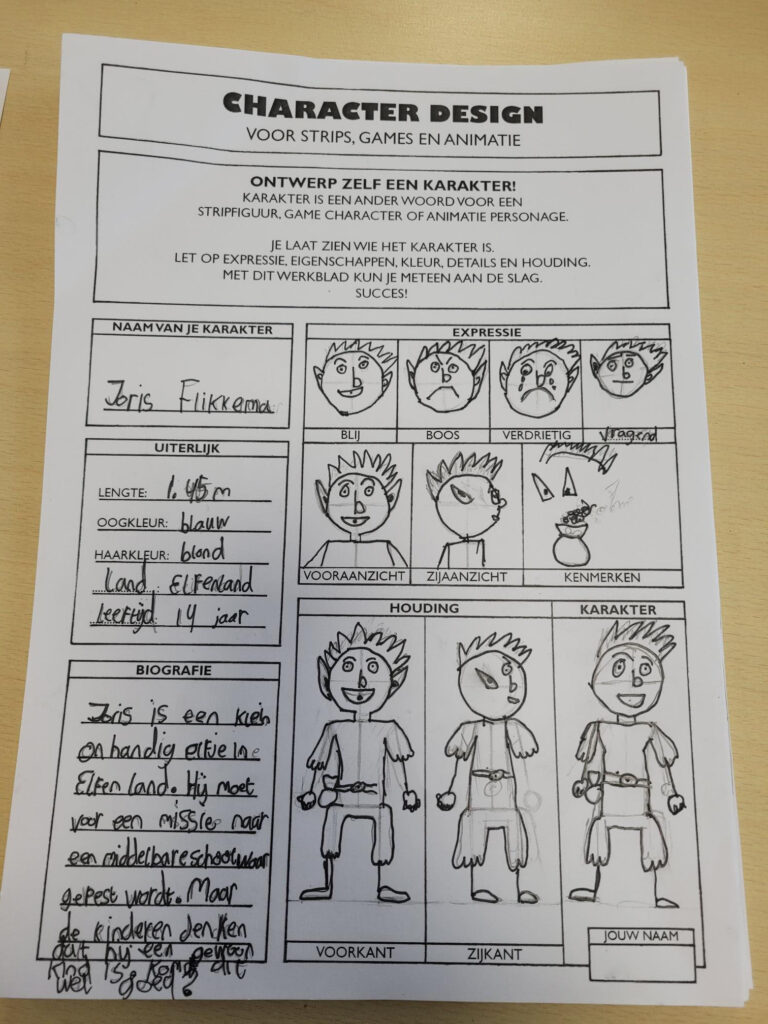 CHARACTER DESIGN
VOOR STRIPS, GAMES EN ANIMATIE
ONTWERP ZELF EEN KARAKTER!
KARAKTER IS EEN ANDER WOORD VOOR EEN
STRIPFIGUUR, GAME CHARACTER OF ANIMATIE PERSONAGE.
JE LAAT ZIEN WIE HET KARAKTER IS.
LET OP EXPRESSIE, EIGENSCHAPPEN, KLEUR, DETAILS EN HOUDING.
MET DIT WERKBLAD KUN JE METEEN AAN DE SLAG.
SUCCES!
NAAM VAN JE KARAKTER
Joris Flikkema
UITERLIJK
LENGTE: 1.45 m
OOGKLEUR: blauw
HAARKLEUR: blond
Land Elfenland
leeftijd 14 jaar
BIOGRAFIE
Joris is een klein
onhandig elfje in
Elfen land. Hij moet
voor een missie naar
een middelbare school waar
gepest wordt. Maar
de kinderen denken
dat hij een gewoon
kind is. Komt dit
wel goed?
EXPRESSIE
BLIJ
BOOS
VERDRIETIG
vragend
VOORAANZICHT
ZIJAANZICHT
KENMERKEN
HOUDING
KARAKTER
VOORKANT
ZIJKANT
JOUW NAAM